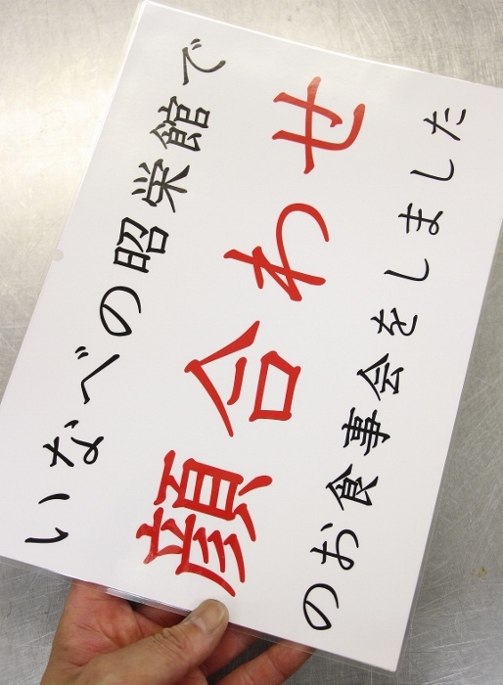 いなべの昭栄館で
顔合わせ
のお食事会をしました